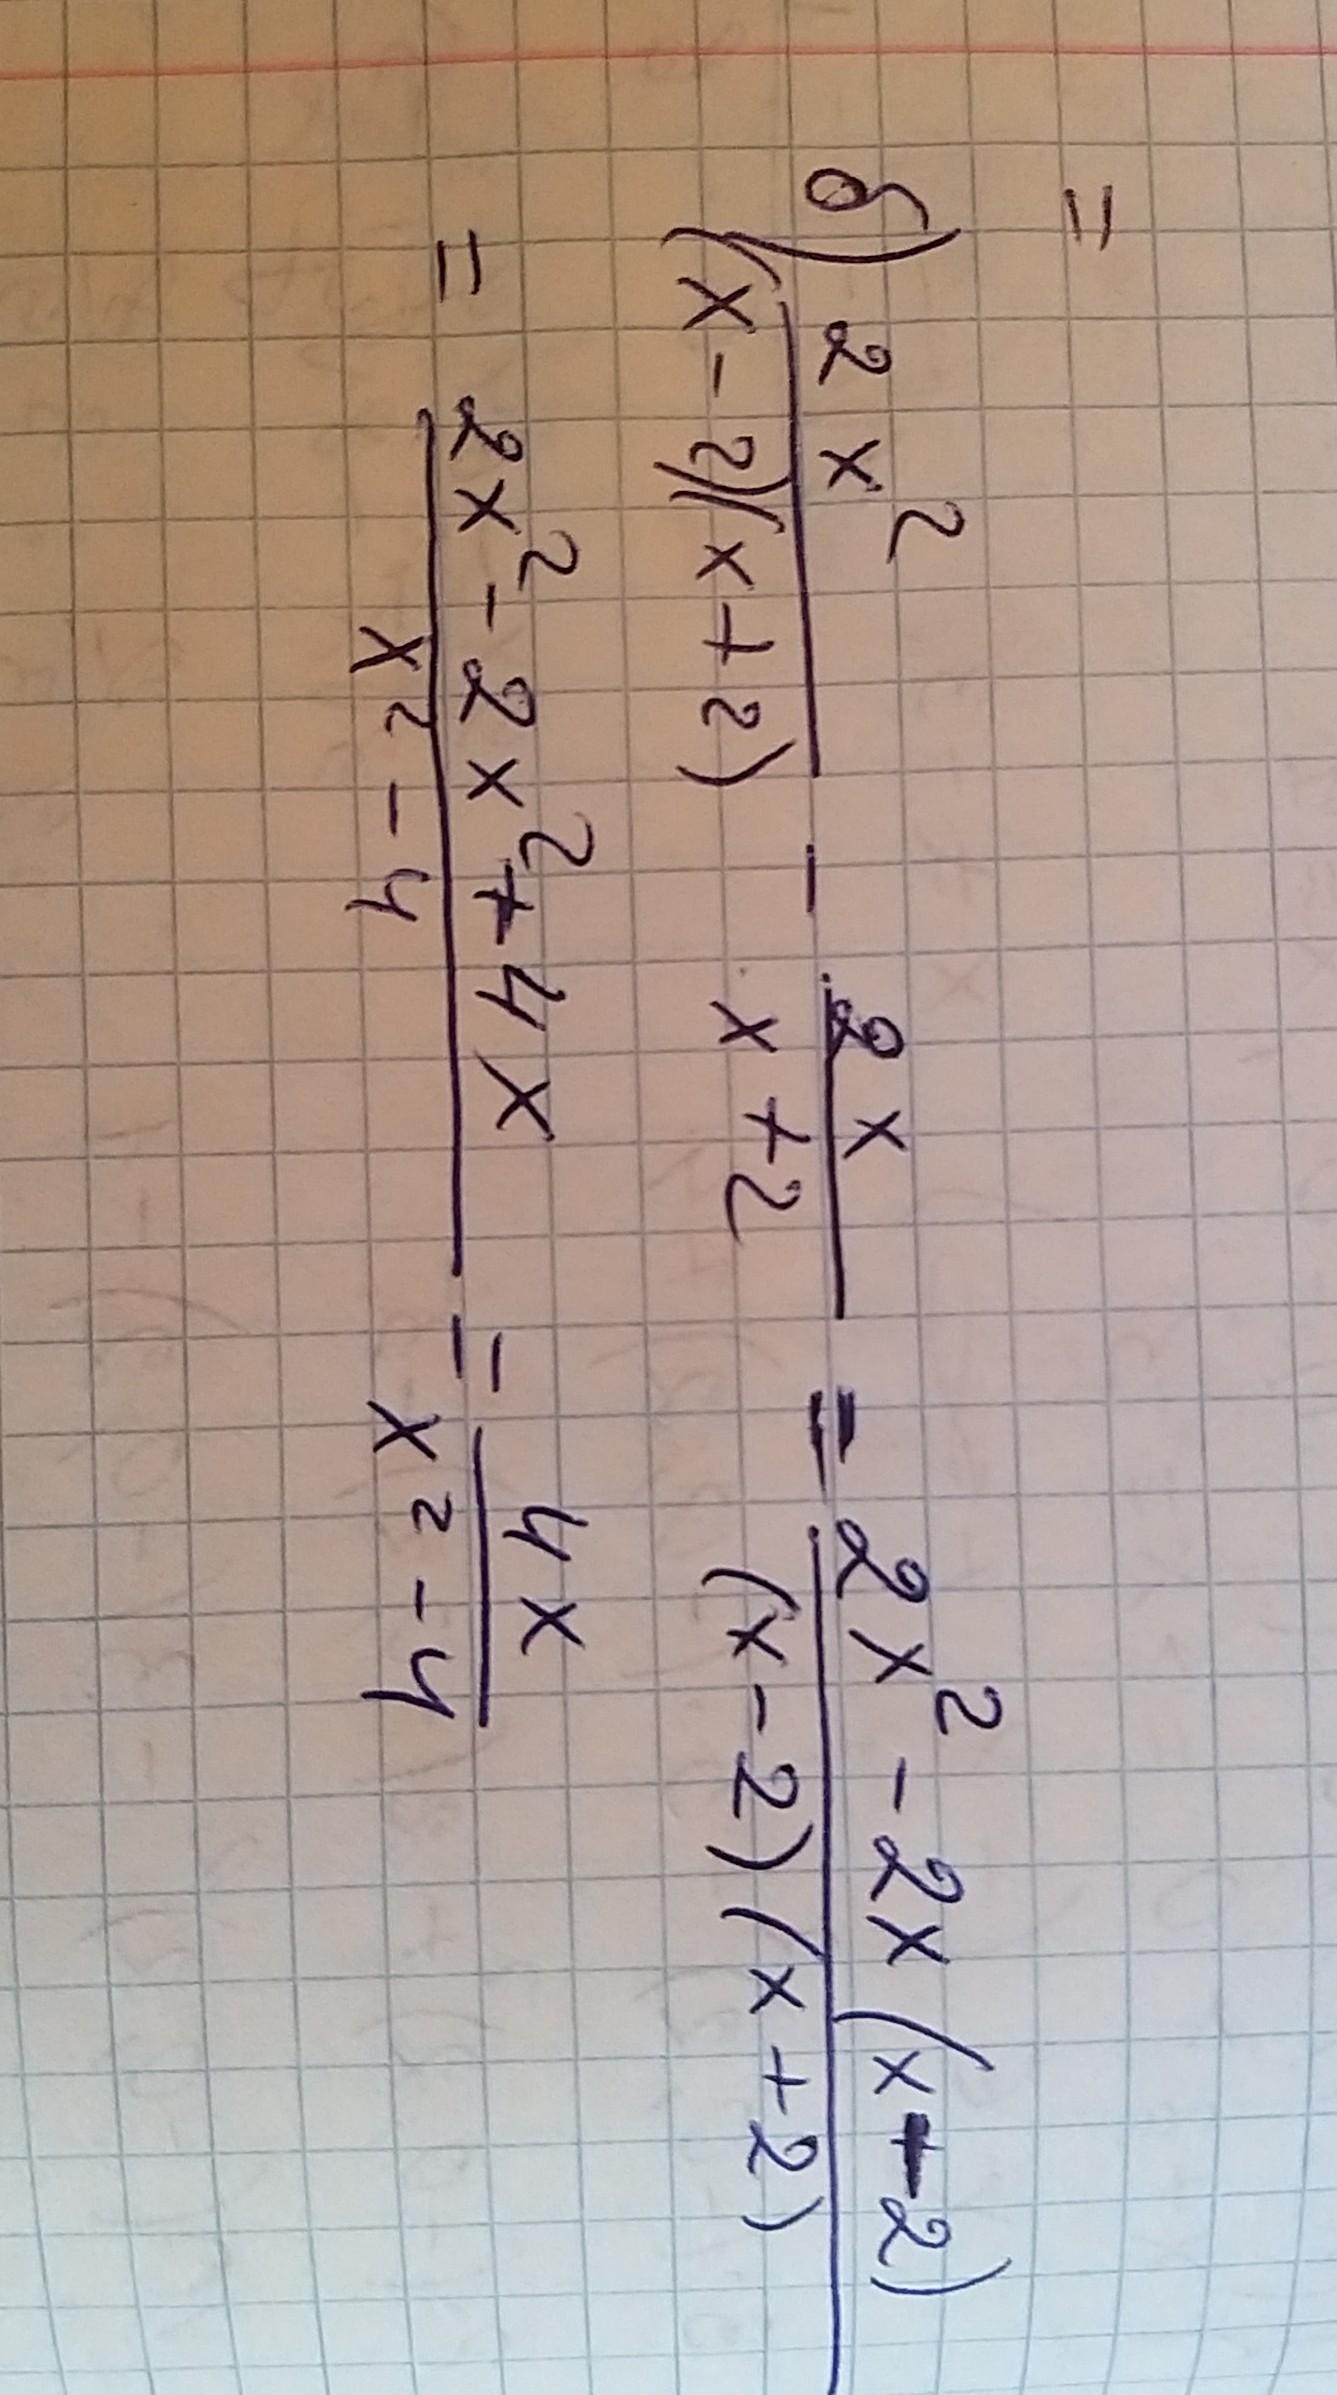 =
б) 2x² / (x-2)(x+2) - 2x / x+2 = 2x² - 2x(x-2) / (x-2)(x+2)
= 2x² - 2x² + 4x / x² - 4 = 4x / x² - 4